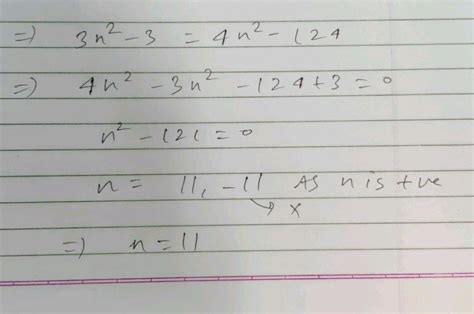 =) 3n² - 3 = 4n² - 124
=) 4n² - 3n² - 124 + 3 = 0
n² - 121 = 0
n = 11, -11 As n is +ve
→ x
=) n = 11